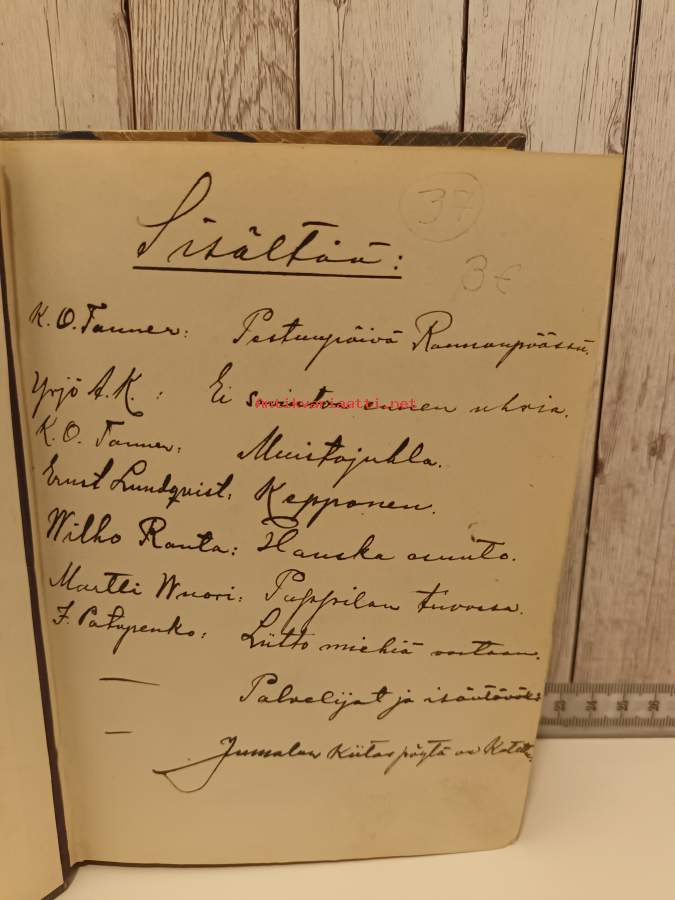 Sisältää:
37
3€
K. O. Tanner: Pestuupäivä Rannanpäässä.
Yrjö A.K. : Ei soieteta ennen uhria.
Antikvariaatti.net
K. O. Tanner: Muistojuhla.
Ernst Lundqvist: Kepponen.
Wilho Rauta: Hauska asunto.
Martti Wuori: Pappilan tuvassa.
J. Patapenko: Liitto miehiä vastaan.
— Palvelijat ja isäntäväki
— Jumalan kiitos pöytä on Katettu